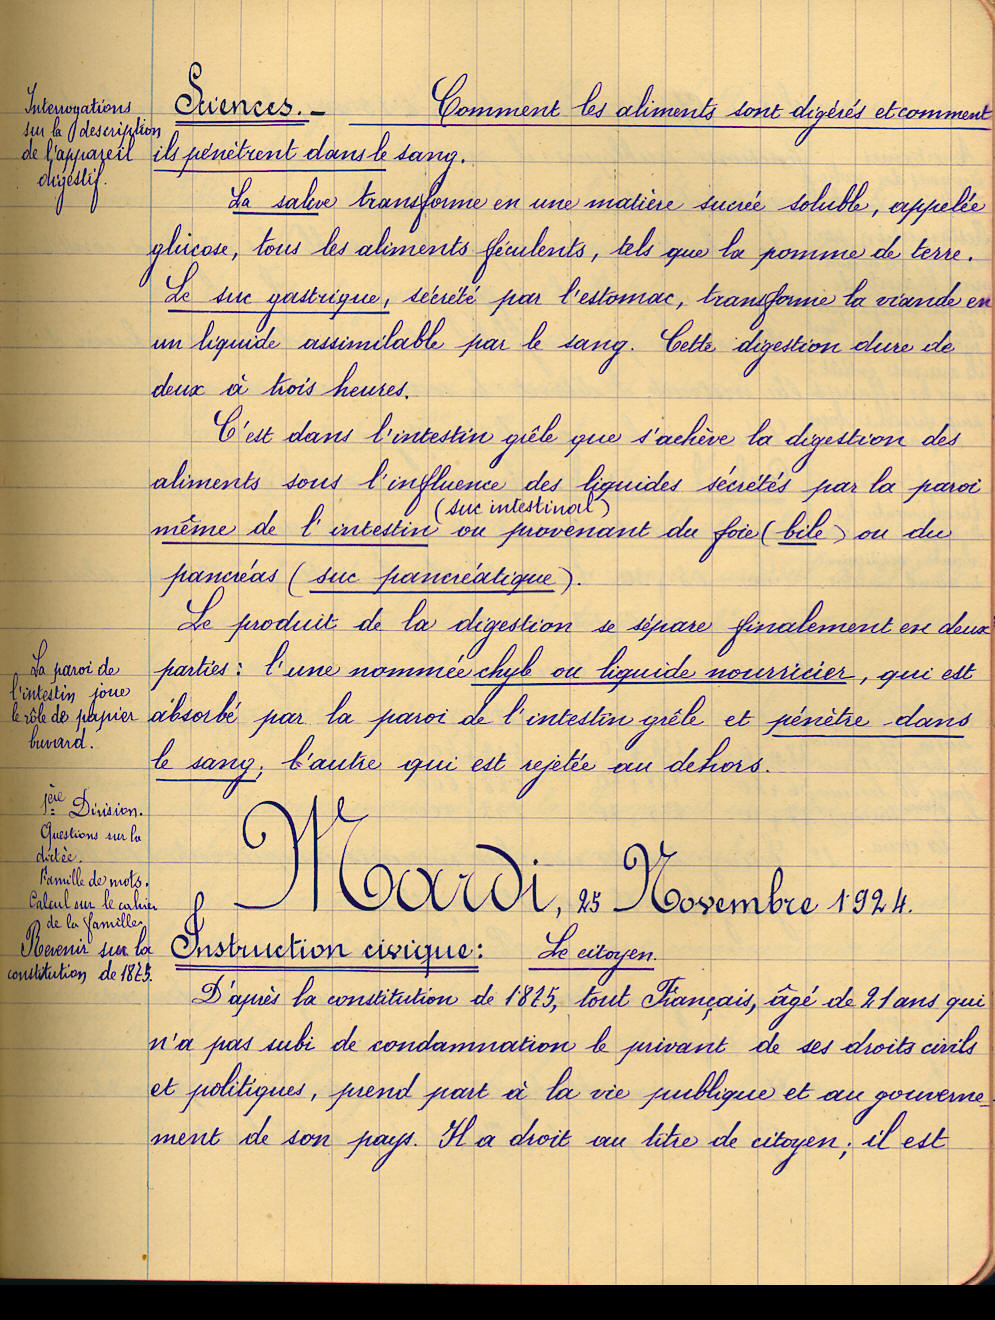 Interrogations
sur la description
de l'appareil
digestif.
Sciences. - Comment les aliments sont digérés et comment
ils pénètrent dans le sang.
La salive transforme en une matière sucrée soluble, appelée
glucose, tous les aliments féculents, tels que la pomme de terre.
Le suc gastrique, sécrété par l'estomac, transforme la viande en
un liquide assimilable par le sang. Cette digestion dure de
deux à trois heures.
C'est dans l'intestin grêle que s'achève la digestion des
aliments sous l'influence des liquides sécrétés par la paroi
(suc intestinal)
même de l'intestin ou provenant du foie (bile) ou du
pancréas (suc pancréatique).
Le produit de la digestion se sépare finalement en deux
La paroi de
l'intestin joue
le rôle de papier
buvard.
parties : l'une nommée chyle ou liquide nourricier, qui est
absorbé par la paroi de l'intestin grêle et pénètre dans
le sang; l'autre qui est rejetée au dehors.
1ère Division.
Questions sur la
dictée.
Famille de mots.
Calcul sur le cahier
de la famille
Revenir sur la
constitution de 1875.
Mardi, 25 Novembre 1924.
Instruction civique : Le citoyen.
D'après la constitution de 1875, tout Français, âgé de 21 ans qui
n'a pas subi de condamnation le privant de ses droits civils
et politiques, prend part à la vie publique et au gouverne-
ment de son pays. Il a droit au titre de citoyen; il est